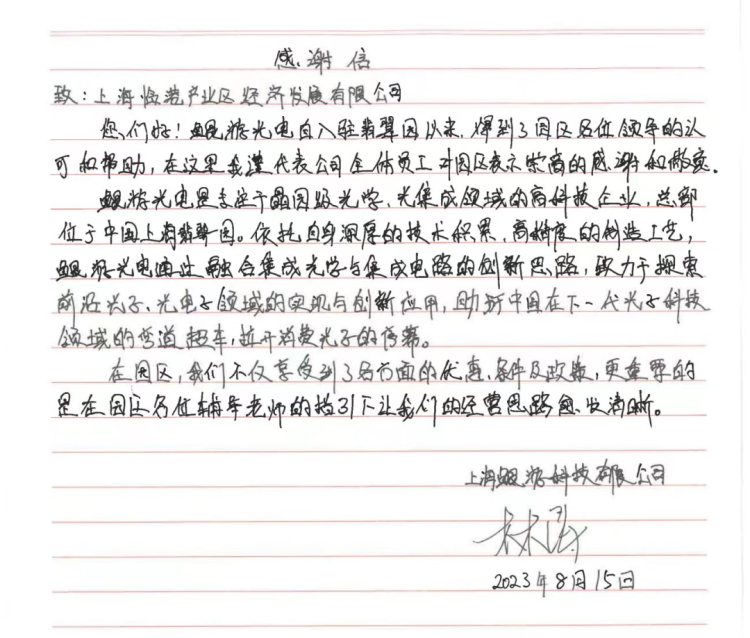 感谢信
致：上海临港产业区经济发展有限公司
您们好！鲲游光电自入驻翡翠园以来，得到了园区各位领导的认
可和帮助，在这里我谨代表公司全体员工对园区表示崇高的感谢和敬意。
鲲游光电是专注于晶圆级光学、光集成领域的高科技企业，总部
位于中国上海翡翠园。依托自身深厚的技术积累、高精度的制造工艺，
鲲游光电通过融合集成光学与集成电路的创新思路，致力于探索
前沿光子、光电子领域的实现与创新应用，助力中国在下一代光子科技
领域的弯道超车，拉开消费光子的序幕。
在园区，我们不仅享受到了各方面的优惠、条件及政策，更重要的
是在园区各位辅导老师的指引下让我们的经营思路愈发清晰。
上海鲲游科技有限公司
林
2023年8月15日